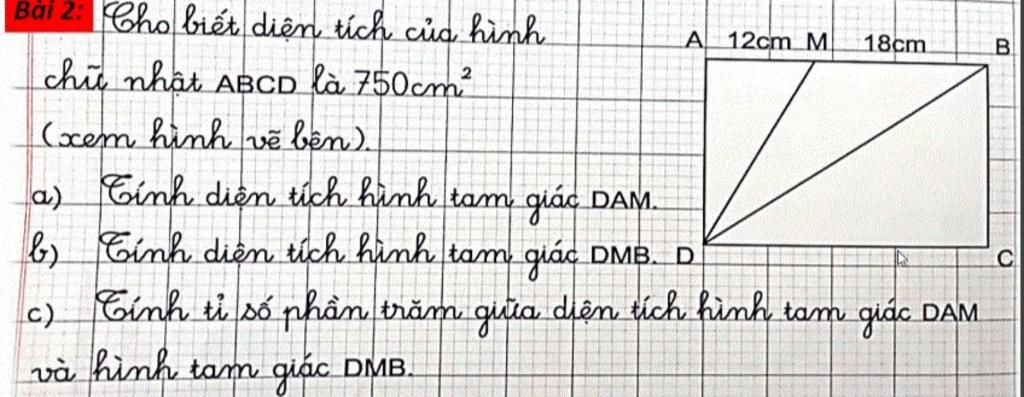 Bài 2: Cho biết diện tích của hình
chữ nhật ABCD là 750cm²
(xem hình vẽ bên).
a) Tính diện tích hình tam giác DAM.
b) Tính diện tích hình tam giác DMB.
c) Tính tỉ số phần trăm giữa diện tích hình tam giác DAM
và hình tam giác DMB.
A 12cm M 18cm B
D C